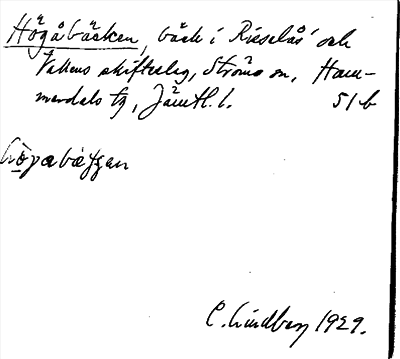 Högåbäcken, bäck i Risselås' och
Vallens skifteslag, Ströms sn, Ham-
merdals tg, Jämtl. l. 51b
C. Lindberg 1929.